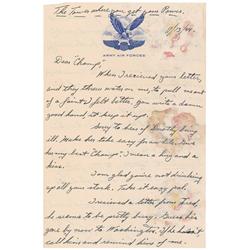 The Town where you get your Power.
11/13/44.
ARMY AIR FORCES
Dear "Champ",
When I received your letter,
and they threw water on me, to pull me out
of a faint I felt better, you write a damn
good hand, so keep it up.
Sorry to hear of Dorothy being
ill. Make her take easy from like
my best "Champ", I mean a hug and a
kiss.
I am glad you're not drinking
up all your stock. Take it easy pal.
I received a letter from Fred,
he seems to be pretty busy. Guess he's
gone by now to Washington. If he hasn't
call him and remind him of me.